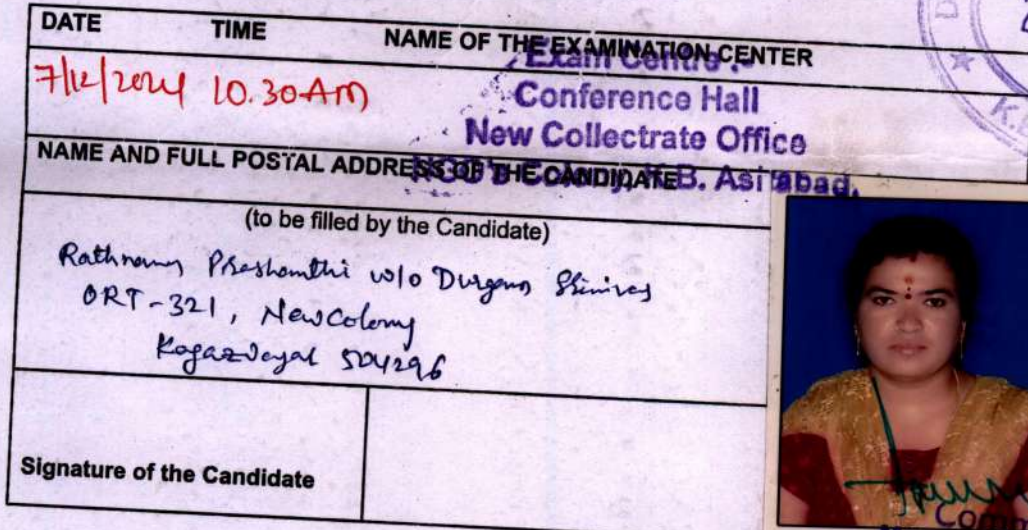 DATE TIME NAME OF THE EXAMINATION CENTER
7/12/2024 10.30 AM
Exam Centre :-
Conference Hall
New Collectrate Office
NGO'S Colony, K.B. Asifabad.
NAME AND FULL POSTAL ADDRESS OF THE CANDIDATE
(to be filled by the Candidate)
Prashanthi w/o Durgam Srinivas
ORT-321, New Colony
504296
Signature of the Candidate